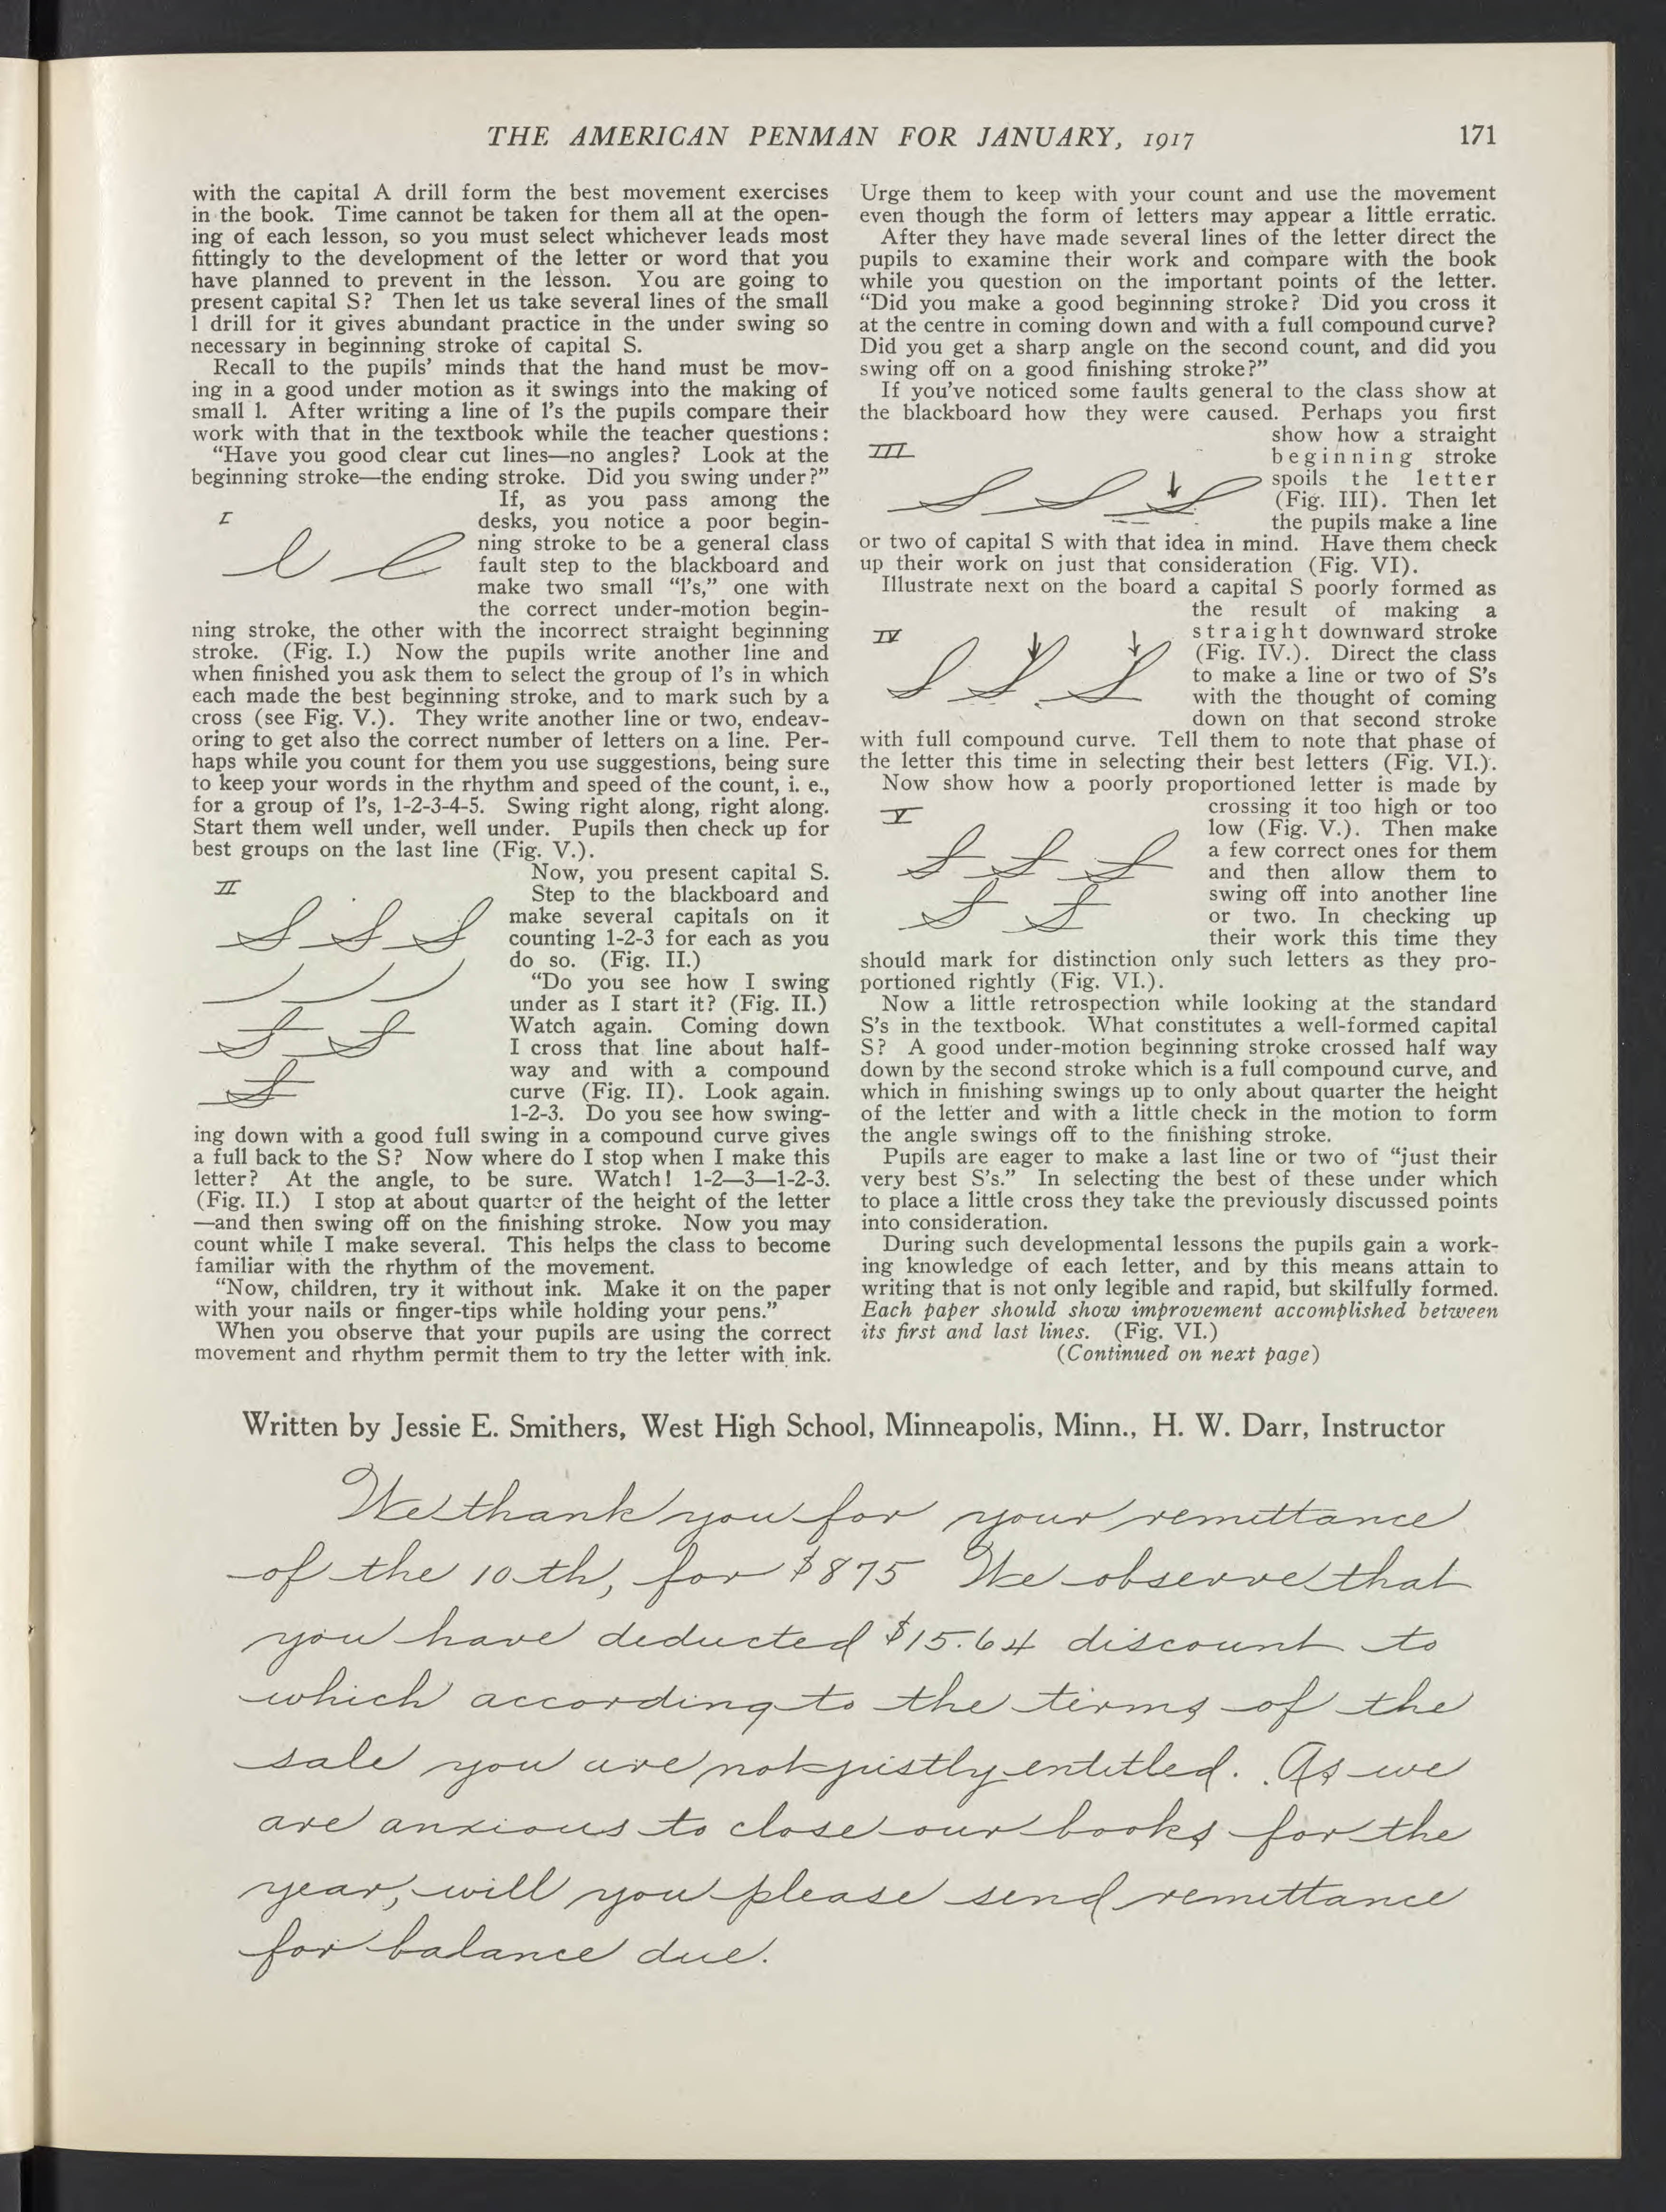 THE AMERICAN PENMAN FOR JANUARY, 1917
171
with the capital A drill form the best movement exercises
in the book. Time cannot be taken for them all at the open-
ing of each lesson, so you must select whichever leads most
fittingly to the development of the letter or word that you
have planned to prevent in the lesson. You are going to
present capital S? Then let us take several lines of the small
l drill for it gives abundant practice in the under swing so
necessary in beginning stroke of capital S.
Recall to the pupils' minds that the hand must be mov-
ing in a good under motion as it swings into the making of
small l. After writing a line of l's the pupils compare their
work with that in the textbook while the teacher questions:
"Have you good clear cut lines—no angles? Look at the
beginning stroke—the ending stroke. Did you swing under?"
If, as you pass among the
I
desks, you notice a poor begin-
ning stroke to be a general class
fault step to the blackboard and
make two small "l's," one with
the correct under-motion begin-
ning stroke, the other with the incorrect straight beginning
stroke. (Fig. I.) Now the pupils write another line and
when finished you ask them to select the group of l's in which
each made the best beginning stroke, and to mark such by a
cross (see Fig. V.). They write another line or two, endeav-
oring to get also the correct number of letters on a line. Per-
haps while you count for them you use suggestions, being sure
to keep your words in the rhythm and speed of the count, i. e.,
for a group of l's, 1-2-3-4-5. Swing right along, right along.
Start them well under, well under. Pupils then check up for
best groups on the last line (Fig. V.).
Now, you present capital S.
II
Step to the blackboard and
make several capitals on it
counting 1-2-3 for each as you
do so. (Fig. II.)
"Do you see how I swing
under as I start it? (Fig. II.)
Watch again. Coming down
I cross that line about half-
way and with a compound
curve (Fig. II). Look again.
1-2-3. Do you see how swing-
ing down with a good full swing in a compound curve gives
a full back to the S? Now where do I stop when I make this
letter? At the angle, to be sure. Watch! 1-2—3—1-2-3.
(Fig. II.) I stop at about quarter of the height of the letter
—and then swing off on the finishing stroke. Now you may
count while I make several. This helps the class to become
familiar with the rhythm of the movement.
"Now, children, try it without ink. Make it on the paper
with your nails or finger-tips while holding your pens."
When you observe that your pupils are using the correct
movement and rhythm permit them to try the letter with ink.
Urge them to keep with your count and use the movement
even though the form of letters may appear a little erratic.
After they have made several lines of the letter direct the
pupils to examine their work and compare with the book
while you question on the important points of the letter.
"Did you make a good beginning stroke? Did you cross it
at the centre in coming down and with a full compound curve?
Did you get a sharp angle on the second count, and did you
swing off on a good finishing stroke?"
If you've noticed some faults general to the class show at
the blackboard how they were caused. Perhaps you first
show how a straight
III
beginning stroke
spoils the letter
(Fig. III). Then let
the pupils make a line
or two of capital S with that idea in mind. Have them check
up their work on just that consideration (Fig. VI).
Illustrate next on the board a capital S poorly formed as
the result of making a
IV
straight downward stroke
(Fig. IV.). Direct the class
to make a line or two of S's
with the thought of coming
down on that second stroke
with full compound curve. Tell them to note that phase of
the letter this time in selecting their best letters (Fig. VI.).
Now show how a poorly proportioned letter is made by
crossing it too high or too
V
low (Fig. V.). Then make
a few correct ones for them
and then allow them to
swing off into another line
or two. In checking up
their work this time they
should mark for distinction only such letters as they pro-
portioned rightly (Fig. VI.).
Now a little retrospection while looking at the standard
S's in the textbook. What constitutes a well-formed capital
S? A good under-motion beginning stroke crossed half way
down by the second stroke which is a full compound curve, and
which in finishing swings up to only about quarter the height
of the letter and with a little check in the motion to form
the angle swings off to the finishing stroke.
Pupils are eager to make a last line or two of "just their
very best S's." In selecting the best of these under which
to place a little cross they take the previously discussed points
into consideration.
During such developmental lessons the pupils gain a work-
ing knowledge of each letter, and by this means attain to
writing that is not only legible and rapid, but skilfully formed.
Each paper should show improvement accomplished between
its first and last lines. (Fig. VI.)
(Continued on next page)
Written by Jessie E. Smithers, West High School, Minneapolis, Minn., H. W. Darr, Instructor
We thank you for your remittance
of the 10th, for $875 We observe that
you have deducted $15.64 discount to
which according to the terms of the
sale you are not justly entitled. As we
are anxious to close our books for the
year, will you please send remittance
for balance due.